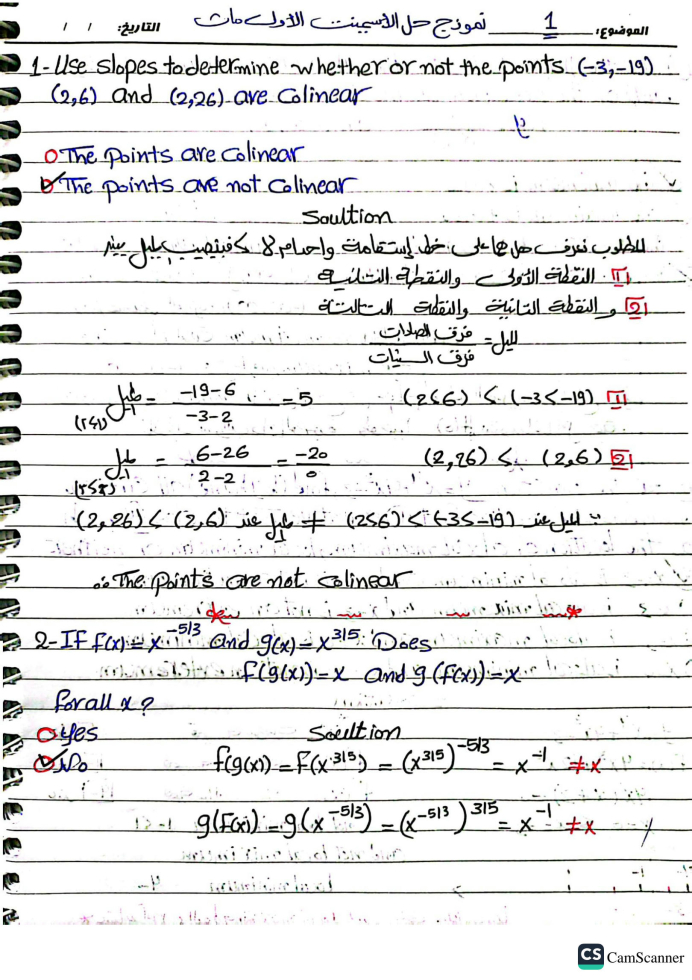 الموضوع: 1 نموذج حل الأسيمنت الأولى ماث التاريخ: / /
1-Use slopes to determine whether or not the points (-3,-19)
(2,6) and (2,26) are Colinear
The points are Colinear
The points are not Colinear
Soultion
المطلوب نعرف هل هما على خط إستقامة واحد أم لا
[1] النقطة الأولى والنقطة الثانية
[2] والنقطة الثانية والنقطة الثالثة
الميل = فرق الصادات / فرق السينات
[1] (-3,-19) , (2,6) ميل (1,2) = (-19-6)/(-3-2) = 5
[2] (2,6) , (2,26) ميل = (6-26)/(2-2) = -20/0
∵ الميل عند (-3,-19) , (2,6) ≠ ميل عند (2,6) , (2,26)
∴ The points are not Colinear
2-If f(x)=x^-5/3 and g(x)=x^3/5 Does
f(g(x))=x and g(f(x))=x
for all x?
yes
Soultion
No f(g(x)) = f(x^3/5) = (x^3/5)^-5/3 = x^-1 ≠ x
g(f(x)) = g(x^-5/3) = (x^-5/3)^3/5 = x^-1 ≠ x
CS CamScanner